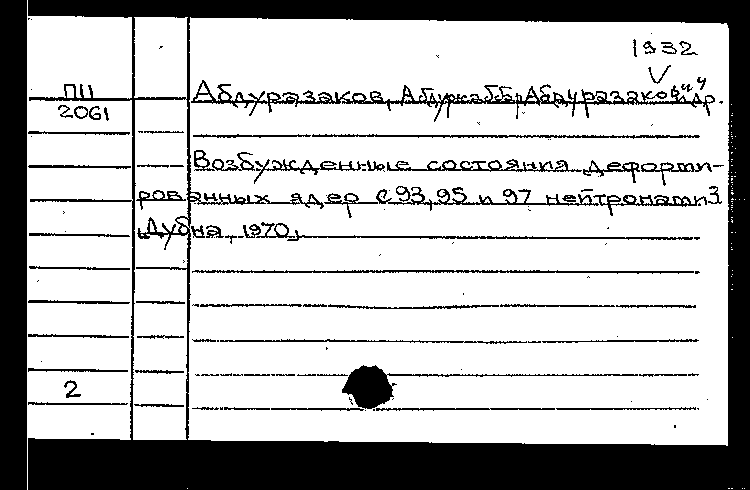 1932
П11
2061
Абдуразаков, Абдужаббар Абдуразакович и др.
Возбужденные состояния деформи-
рованных ядер с 93, 95 и 97 нейтронами
[Дубна, 1970]
2